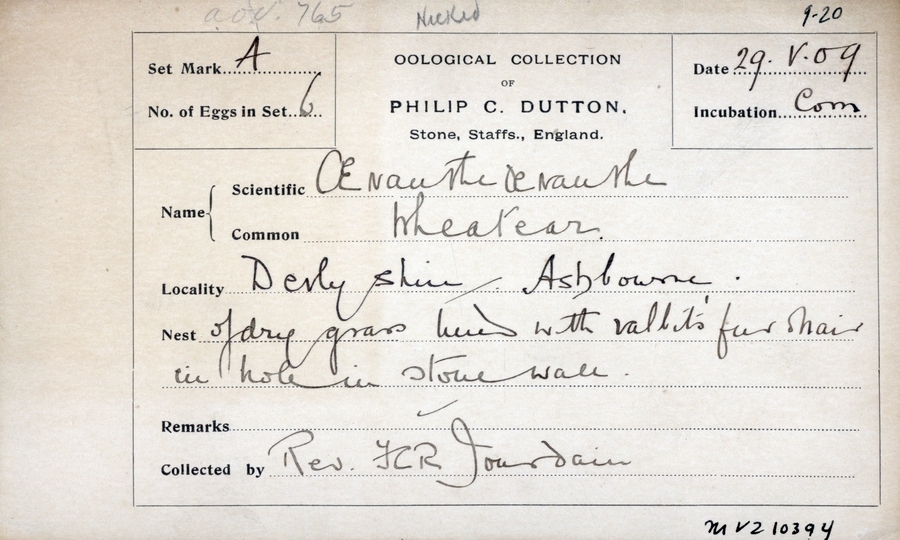 a ou. 765 Nicked 9-20
Set Mark A
No. of Eggs in Set 6
OOLOGICAL COLLECTION
OF
PHILIP C. DUTTON,
Stone, Staffs., England.
Date 29. V. 09
Incubation Com
Name
Scientific Œnanthe œnanthe
Common Wheatear.
Locality Derbyshire Ashbourne.
Nest of dry grass lined with rabbits' fur & hair
in hole in stone wall.
Remarks
Collected by Rev. FCR Jourdain
MVZ 10394